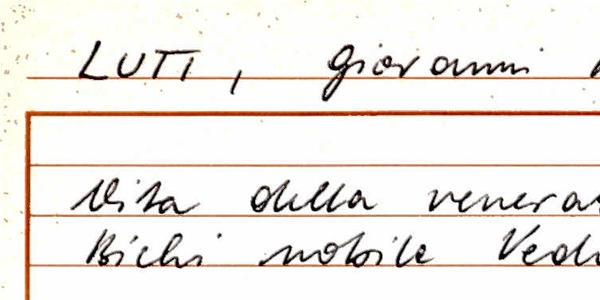 LUTI, Giovanni
Vita della venera
Bichi nobile Ved